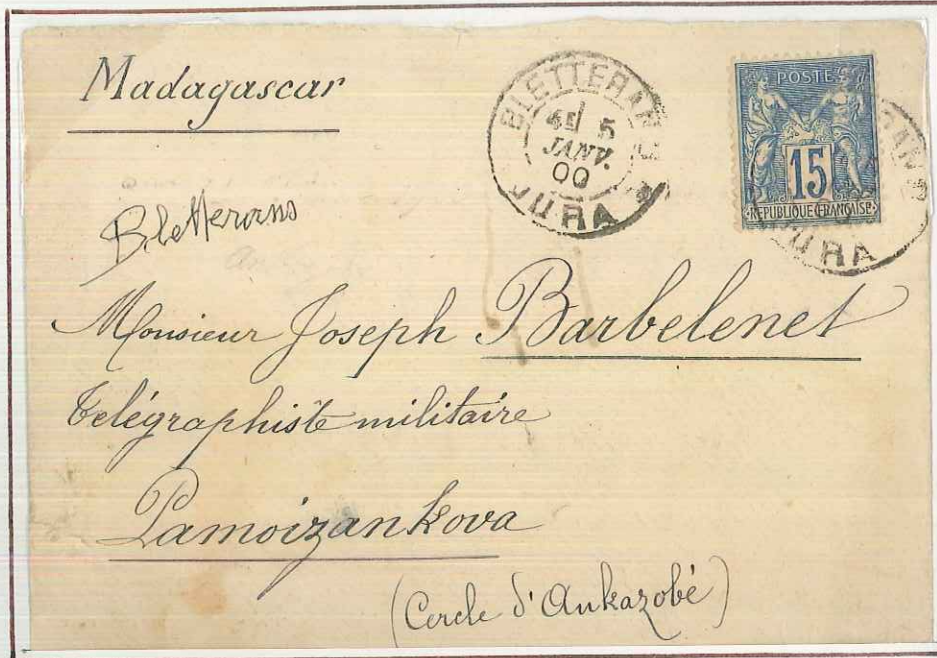 Madagascar
BLETTERANS
4E 5
JANV.
00
JURA
POSTE
15
REPUBLIQUE FRANÇAISE
JURA
Bletterans
Monsieur Joseph Barbelenet
Télégraphiste militaire
Lamoizankova
(Cercle d'Ankazobé)